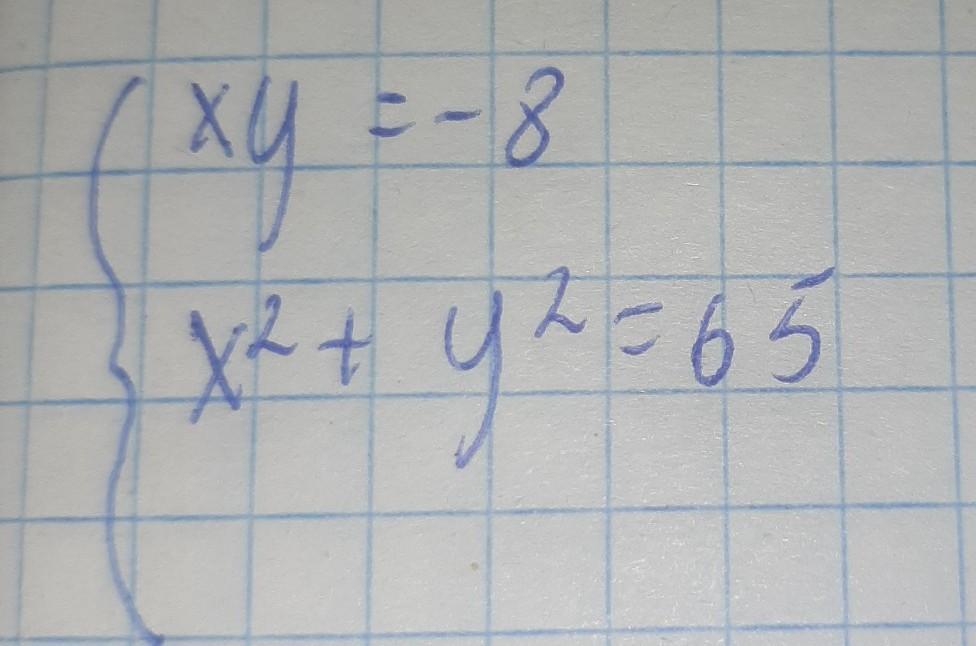 xy = -8
x² + y² = 65